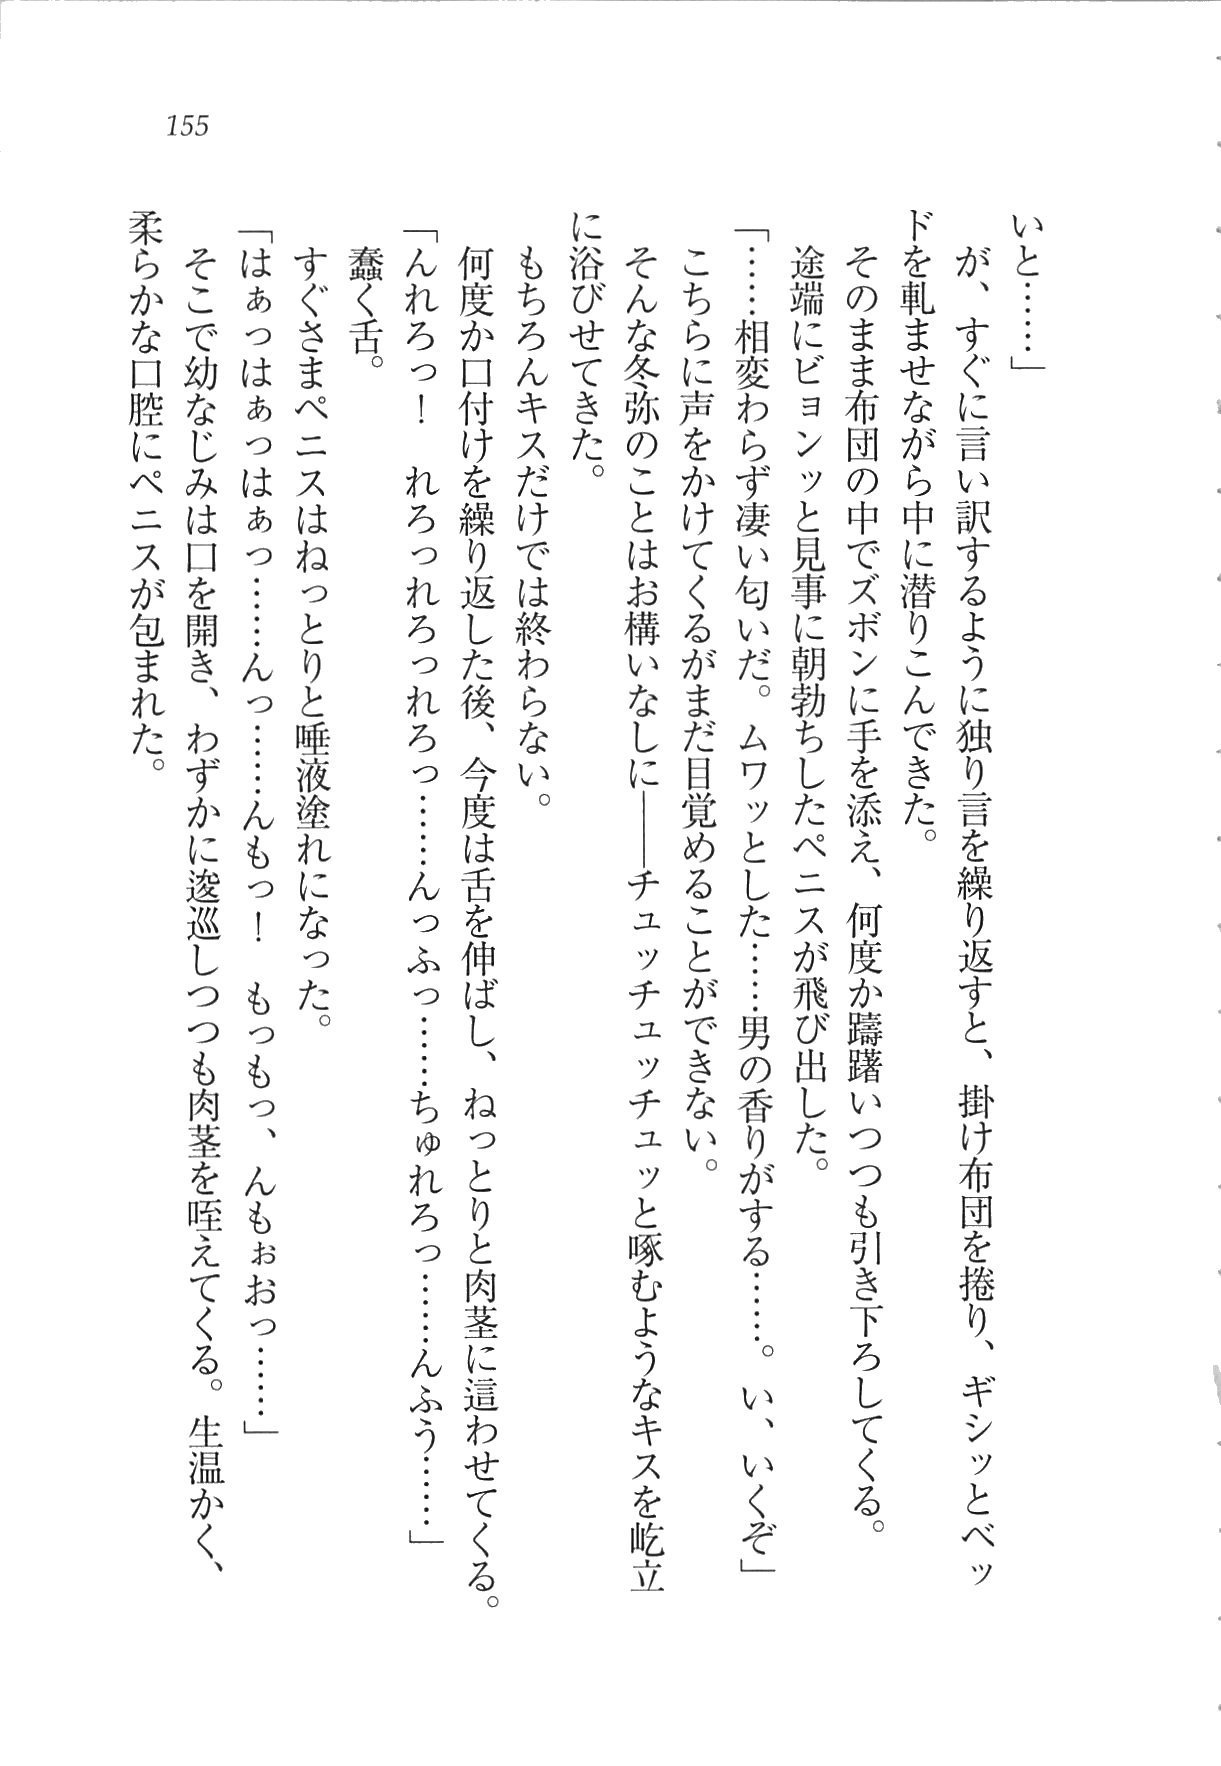 155
いと……」
が、すぐに言い訳するように独り言を繰り返すと、掛け布団を捲り、ギシッとベッ
ドを軋ませながら中に潜りこんできた。
そのまま布団の中でズボンに手を添え、何度か躊躇いつつも引き下ろしてくる。
途端にビョンッと見事に朝勃ちしたペニスが飛び出した。
「……相変わらず凄い匂いだ。ムワッとした……男の香りがする……。い、いくぞ」
こちらに声をかけてくるがまだ目覚めることができない。
そんな冬弥のことはお構いなしに――チュッチュッチュッと啄むようなキスを屹立
に浴びせてきた。
もちろんキスだけでは終わらない。
何度か口付けを繰り返した後、今度は舌を伸ばし、ねっとりと肉茎に這わせてくる。
「んれろっ！　れろっれろっれろっ……んっふっ……ちゅれろっ……んふう……」
蠢く舌。
すぐさまペニスはねっとりと唾液塗れになった。
「はぁっはぁっはぁっ……んっ……んもっ！　もっもっ、んもぉおっ……」
そこで幼なじみは口を開き、わずかに逡巡しつつも肉茎を咥えてくる。生温かく、
柔らかな口腔にペニスが包まれた。